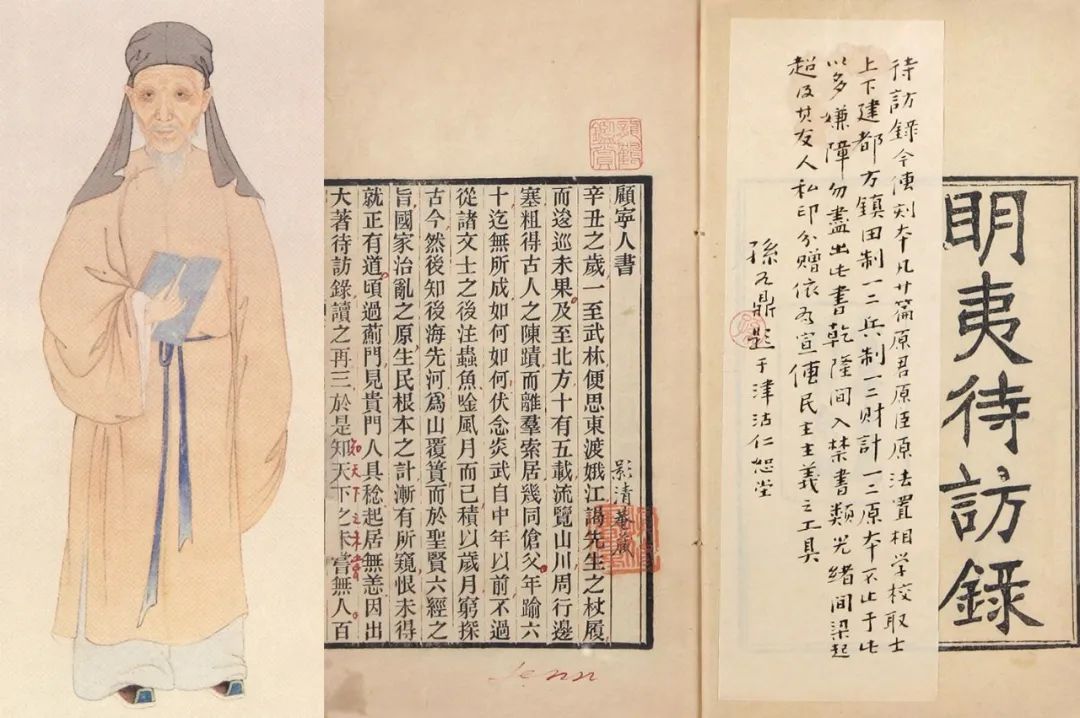 明夷待訪錄
待訪錄今傳刻本凡廿篇原君原臣原法置相学校取士
上下建都方鎮田制一二兵制一二財計一二原本不止于此
以多嫌障勿盡出此書乾隆間入禁書類光緒間梁起
超及其友人私印分贈依爲宣傳民主主義之工具
題于津沽仁恕堂
顧寧人書
景清菴藏
辛丑之歲一至武林便思東渡娥江謁先生之杖履
而逡巡未果及至北方十有五載流覽山川周行邊
塞粗得古人之陳蹟而離羣索居幾同傖父年踰六
十迄無所成如何如何伏念炎武自中年以前不過
從諸文士之後注蟲魚唫風月而已積以歲月窮探
古今然後知後海先河爲山覆簣而於聖賢六經之
旨國家治亂之原生民根本之計漸有所窺恨未得
就正有道頃過薊門見貴門人具稔起居無恙因出
大著待訪錄讀之再三於是知天下之未嘗無人百
知天下之未嘗